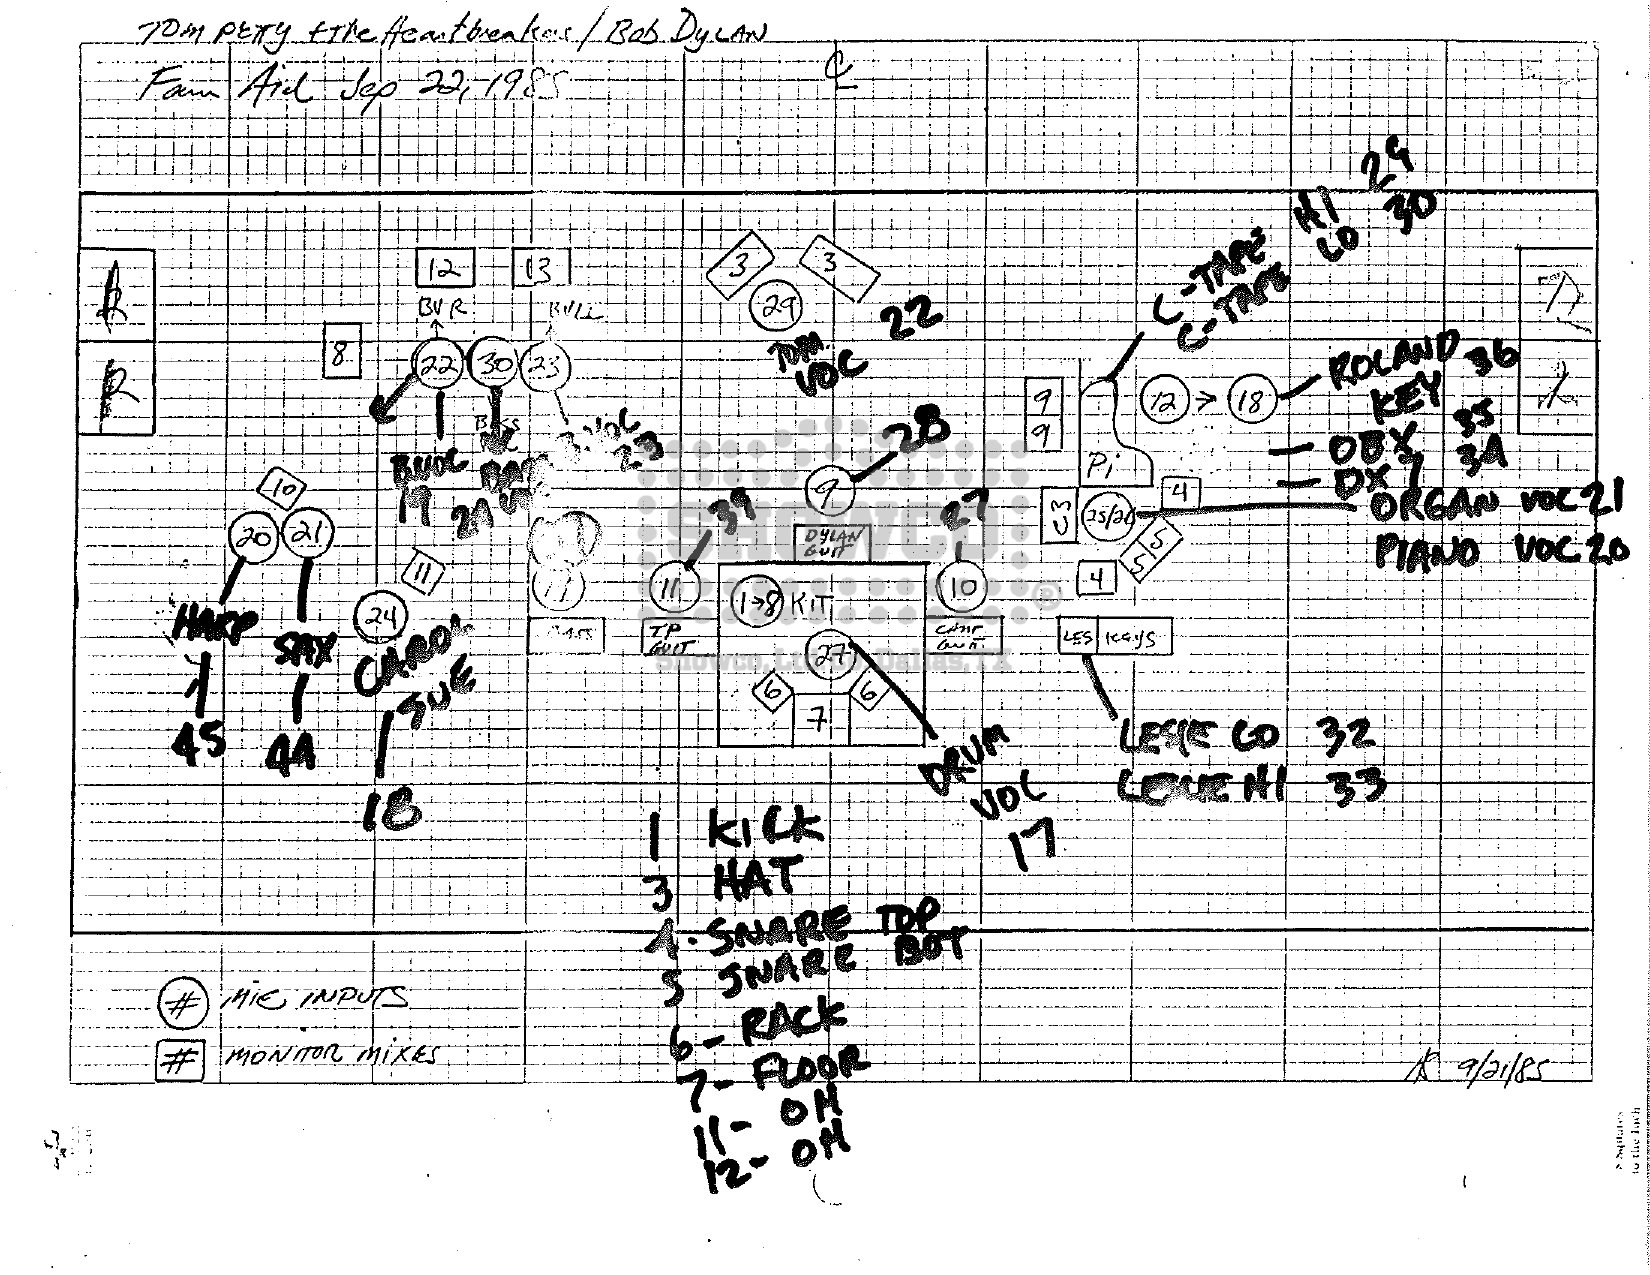 TOM PETTY & the Heartbreakers / Bob DYLAN
Farm Aid Sep 22, 1985
29
HI 30
LO
C-TAPE
C-TAPE
12 13
3 3
29
BVR
8
22 30 23
TOM
VOC 22
9
9
12 → 18
ROLAND 36
KEY
OBX 35
DX7 34
ORGAN VOC 21
PIANO VOC 20
Pi
4
25/26
5
5
4
28
9
DYLAN
GUIT
39
27
11
1→8 KIT
10
TP
GUIT
LES KEYS
27
6 6
7
BVOC
19
24
VOC
23
10
20 21
11
24
HARP
SAX
CAROL
SUE
45
44
18
DRUM
VOC
17
LESLIE LO 32
LESLIE HI 33
SHOWCO
®
Showco, Ltd. Dallas, TX
1 KICK
3 HAT
4- SNARE TOP
5 SNARE BOT
6- RACK
7- FLOOR
11- OH
12- OH
# MIC INPUTS
# MONITOR MIXES
9/21/85
to the Inch